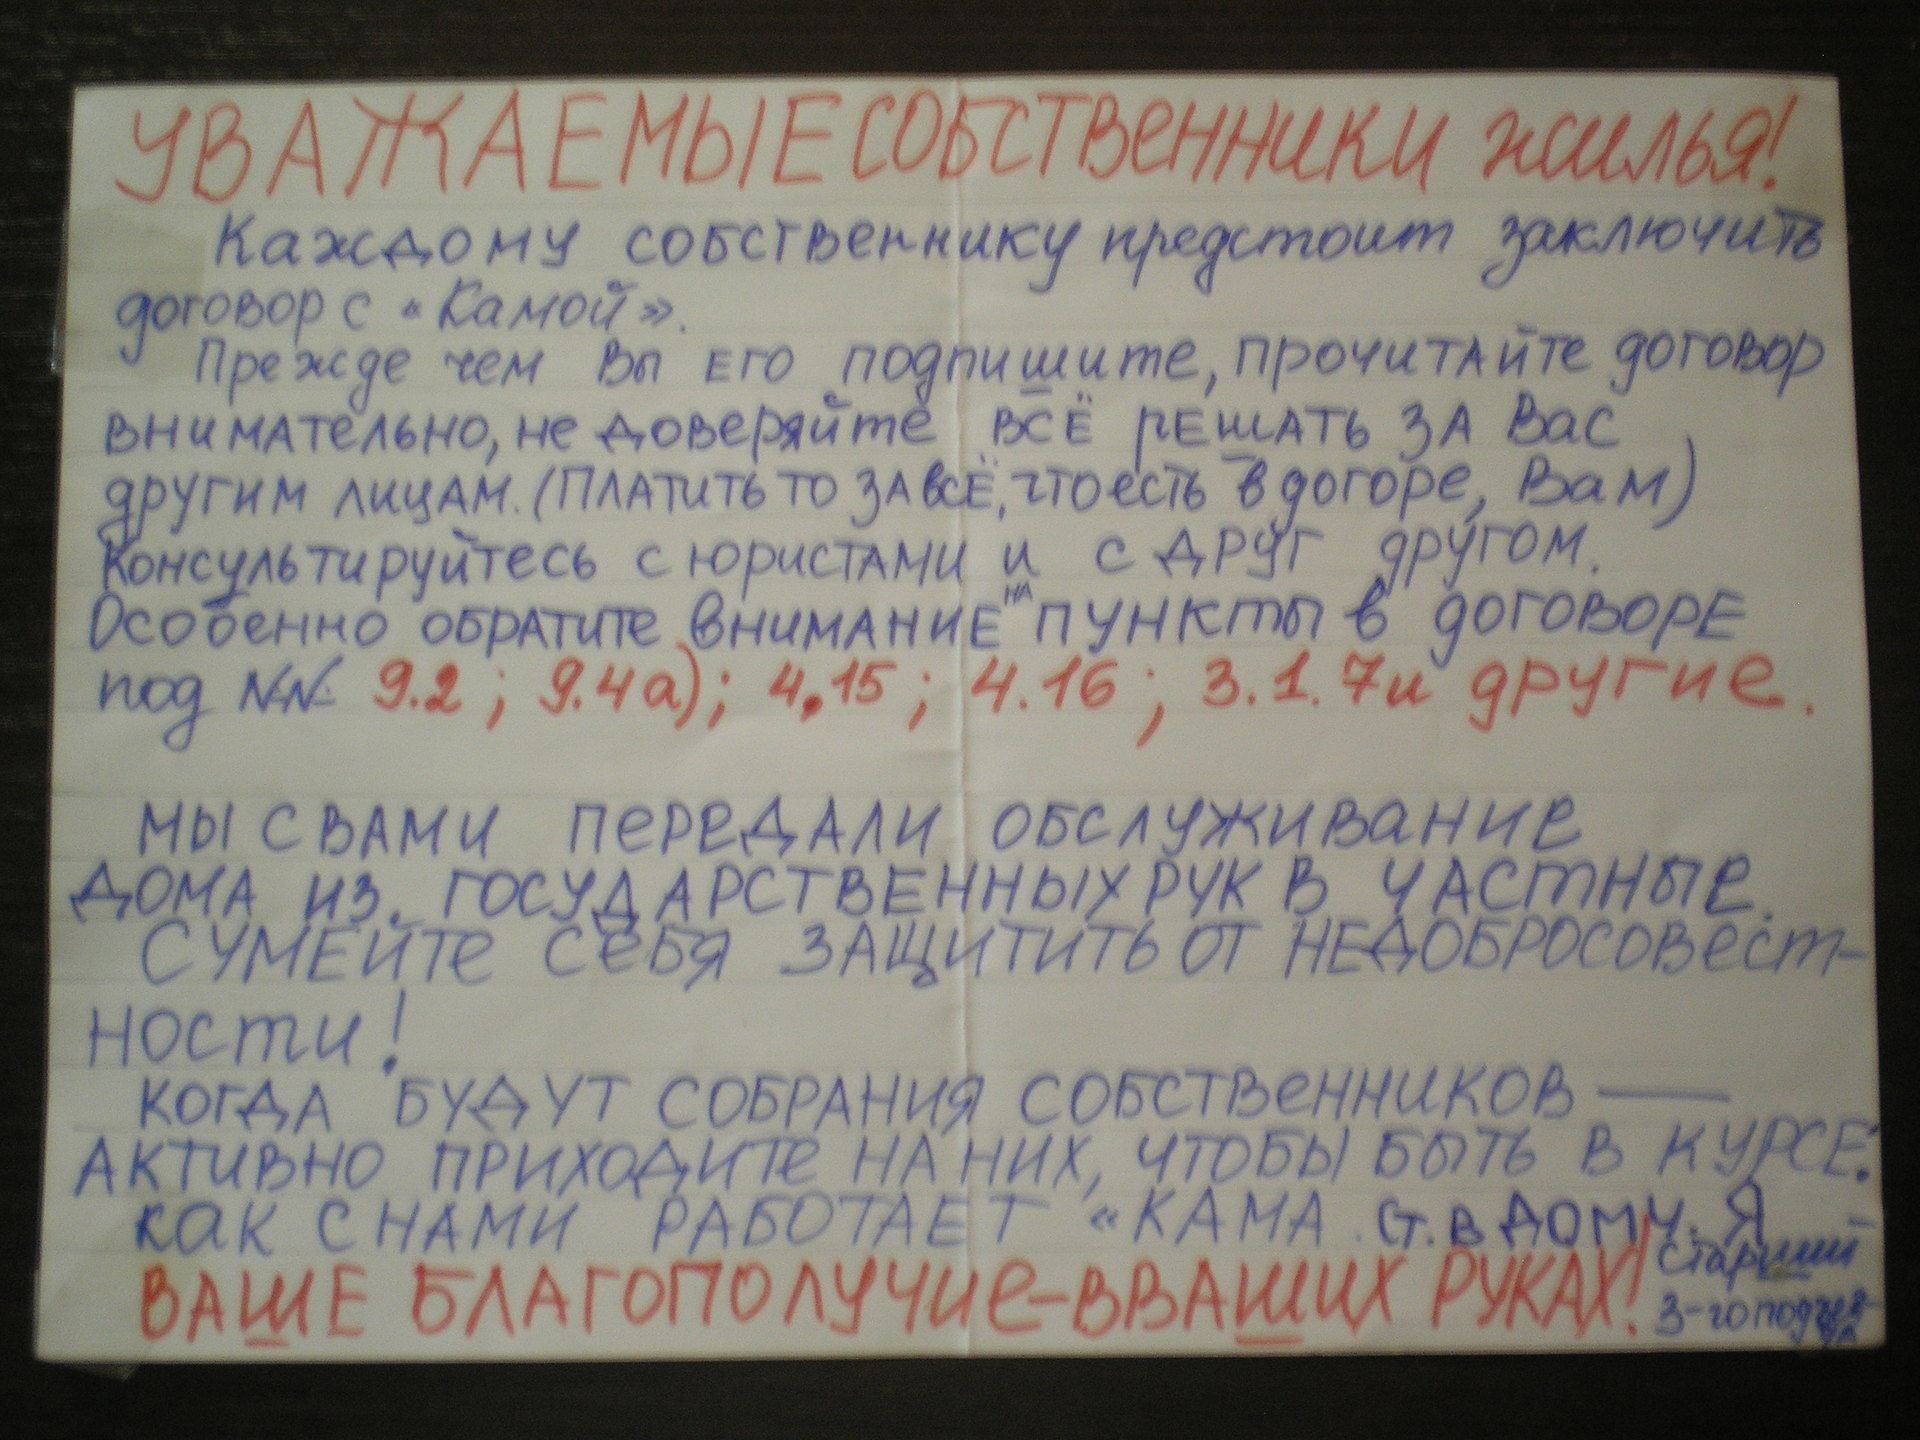 УВАЖАЕМЫЕ СОБСТВЕННИКИ жилья!
Каждому собственнику предстоит заключить
договор с «Камой».
Прежде чем Вы его подпишите, прочитайте договор
внимательно, не доверяйте всё решать за Вас
другим лицам. (Платить то за всё, что есть в догоре, Вам)
Консультируйтесь с юристами и с друг другом.
Особенно обратите внимание на пункты в договоре
под №№ 9.2; 9.4а); 4.15; 4.16; 3.1.7 и другие.
Мы с Вами передали обслуживание
дома из государственных рук в частные.
Сумейте себя защитить от недобросовест-
ности!
Когда будут собрания собственников —
активно приходите на них, чтобы быть в курсе:
как с нами работает «КАМА ст. в дому. Я
ВАШЕ БЛАГОПОЛУЧИЕ – В ВАШИХ РУКАХ!
Старший
3-го